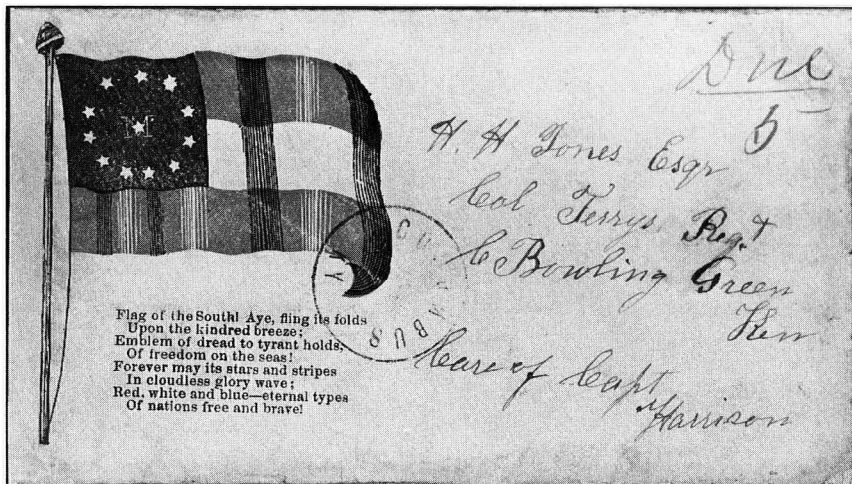 Due
5
H. H Jones Esqr
Col Terrys Regt
Bowling Green
Ken
Care of Capt
Harrison
M
COLUMBUS KY
Flag of the South! Aye, fling its folds
Upon the kindred breeze;
Emblem of dread to tyrant holds,
Of freedom on the seas!
Forever may its stars and stripes
In cloudless glory wave;
Red, white and blue—eternal types
Of nations free and brave!